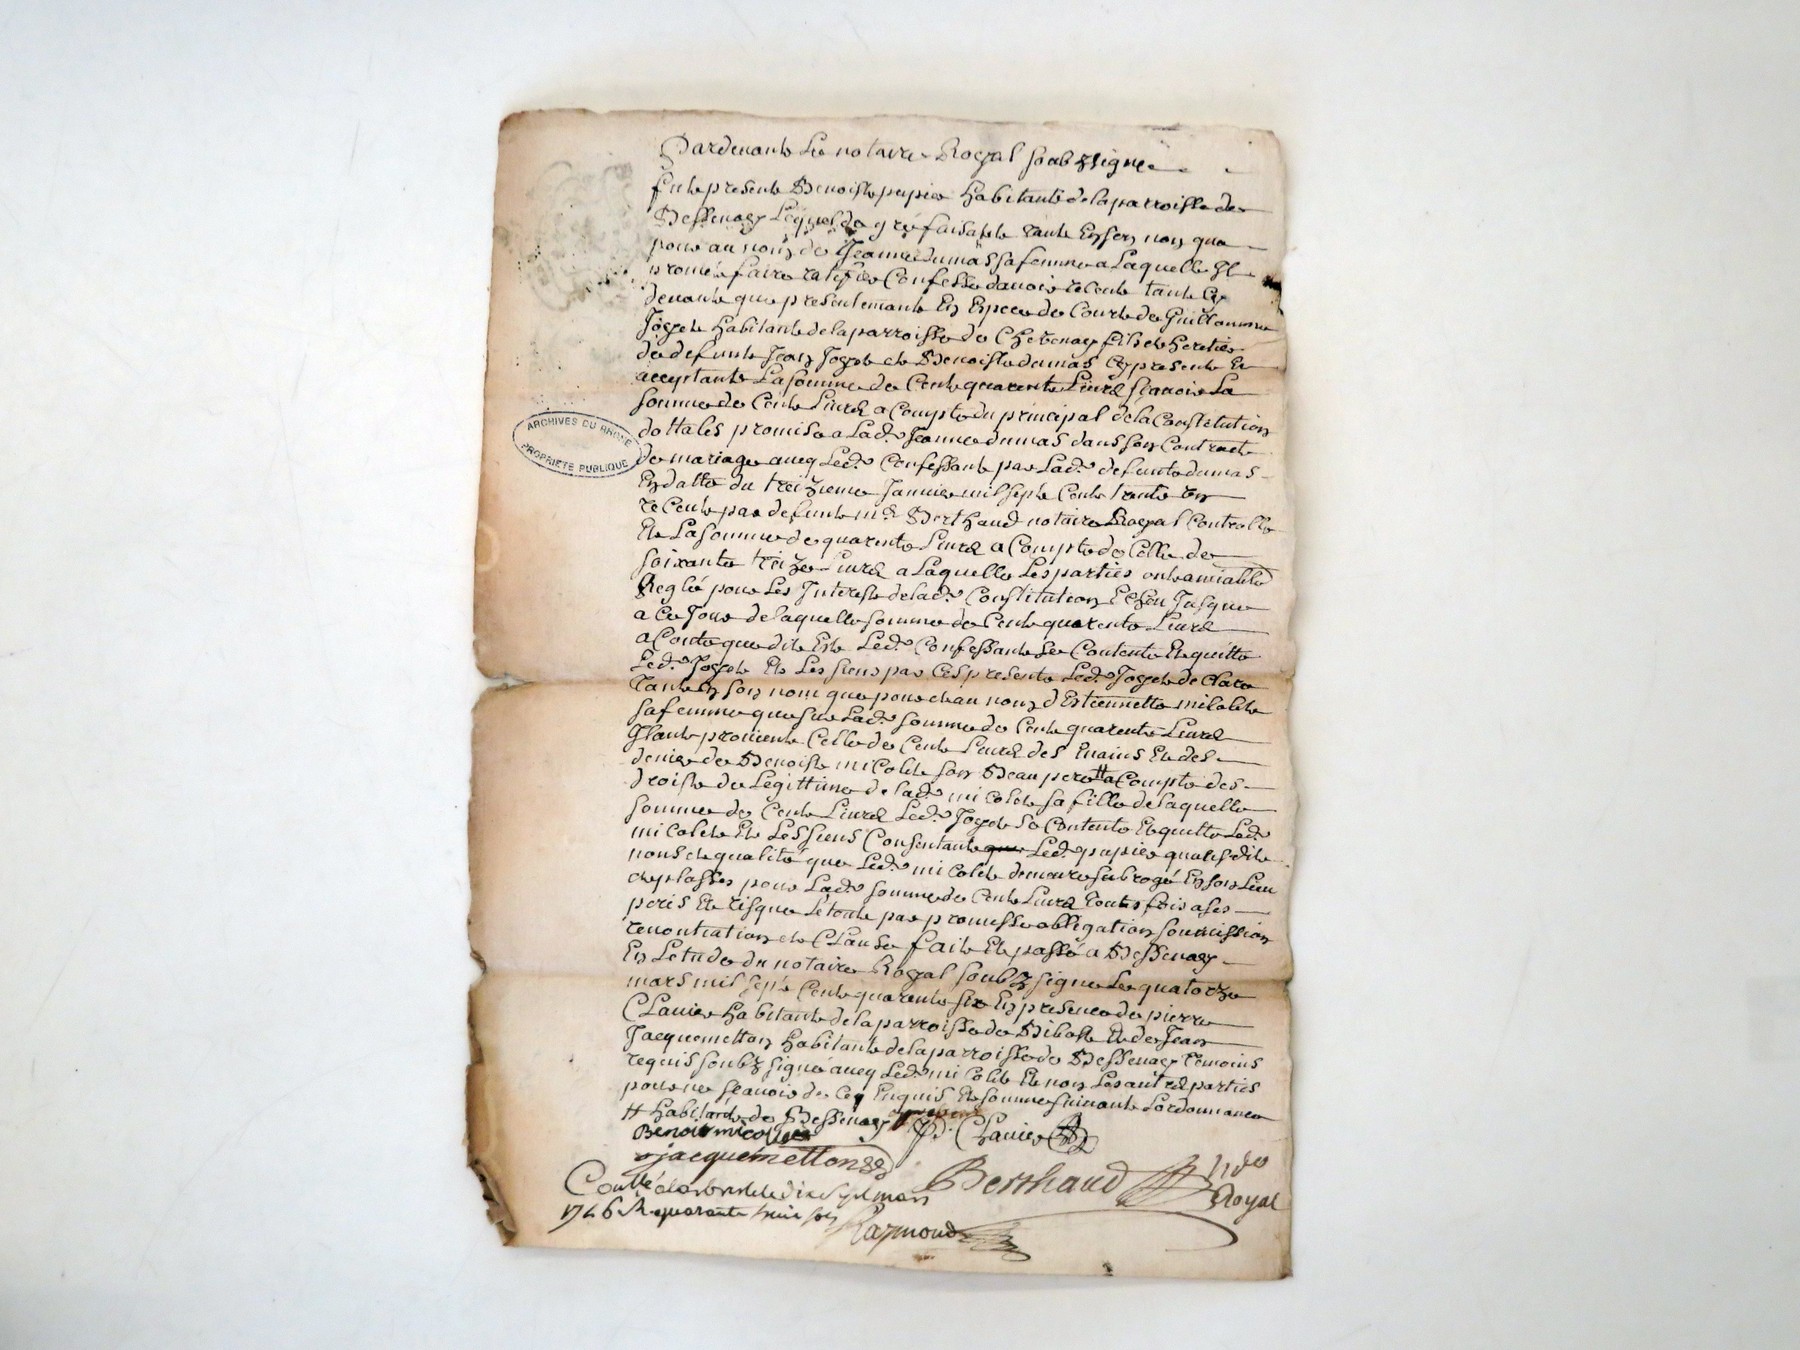 Pardevant Le notaire Royal soubzsigné
fut present Benoist papier habitant de la parroisse de
Bessenay Lequel de gré faisant tant En son nom que
pour au nom de Jeanne dumas sa femme a Laquelle Il
promet faire ratifier Confesse d'avoir receut tant Cy
devant que presentemant En Espece de Court de Guillaume
Jogot habitant de la parroisse de Chevenay fils et heretier
de defunt Jean Jogot et Benoiste dumas Cy present Et
acceptant La somme de Cent quarente Livres sçavoir La
somme de Cent Livres a Compte du principal de la Constitution
dottales promise a Lad.e Jeanne dumas dans son Contract
de mariage avec Led.t Confessant par Lad.e defunte dumas
En datte du treizieme Janvier mil sept Cent trente
receut par defunt m.e Berthaud notaire Royal Controllé
Et La somme de quarente Livres a Compte de Celle de
soixante treize Livres a Laquelle Les parties ont amiable
Reglé pour Les Interest de lad.e Constitution Jusque
a Ce Jour de laquelle somme de Cent quarente Livres
a Conte que dit Est Led.t Confessant se Contente Et quitte
Led.t Jogot Et Les siens par Ces presente Led.t Jogot declare
tant En son nom que pour et au nom d'Estiennette micolet
sa femme que sur Lad.e somme de Cent quarente Livres
Il ont provient Celle de Cent Livres des mains Et des
denier de Benoist micolet son Beau pere # a Compte des
droist de Legittime de lad.e micolet sa fille de laquelle
somme de Cent Livres Led.t Jogot se Contente Et quitte Led.t
micolet Et Les siens Consentant que Led.t papier quallesdit
noms et qualité que Led.t micolet demeure subrogé En son Lieu
et plasses pour Lad.e somme de Cent Livres toutes fois a ses
peris Et risque Le tout par promesse obligation soumission
renontiation et Clause fait Et passé a Bessenay
En Letude du notaire Royal soubzsigné Le quatorze
mars mil sept Cent quarente six En presence de pierre
Clavier habitant de la parroisse de Bibost Et de Jean
Jacquemetton habitant de la parroisse de Bessenay temoins
requis soubzsigné avec Led.t micolet Et non Les autres parties
pour ne sçavoir de Ce Enquis Et somme suivant Lordonnance
# habitant de Bessenay
Benoit micollet P. Clavier
jacquemetton
Berthaud n.re Royal
Con.llé a Larbresle le dix sept mars
1746 R. quarante huit sols
Raymond
ARCHIVES DU RHONE
PROPRIETE PUBLIQUE